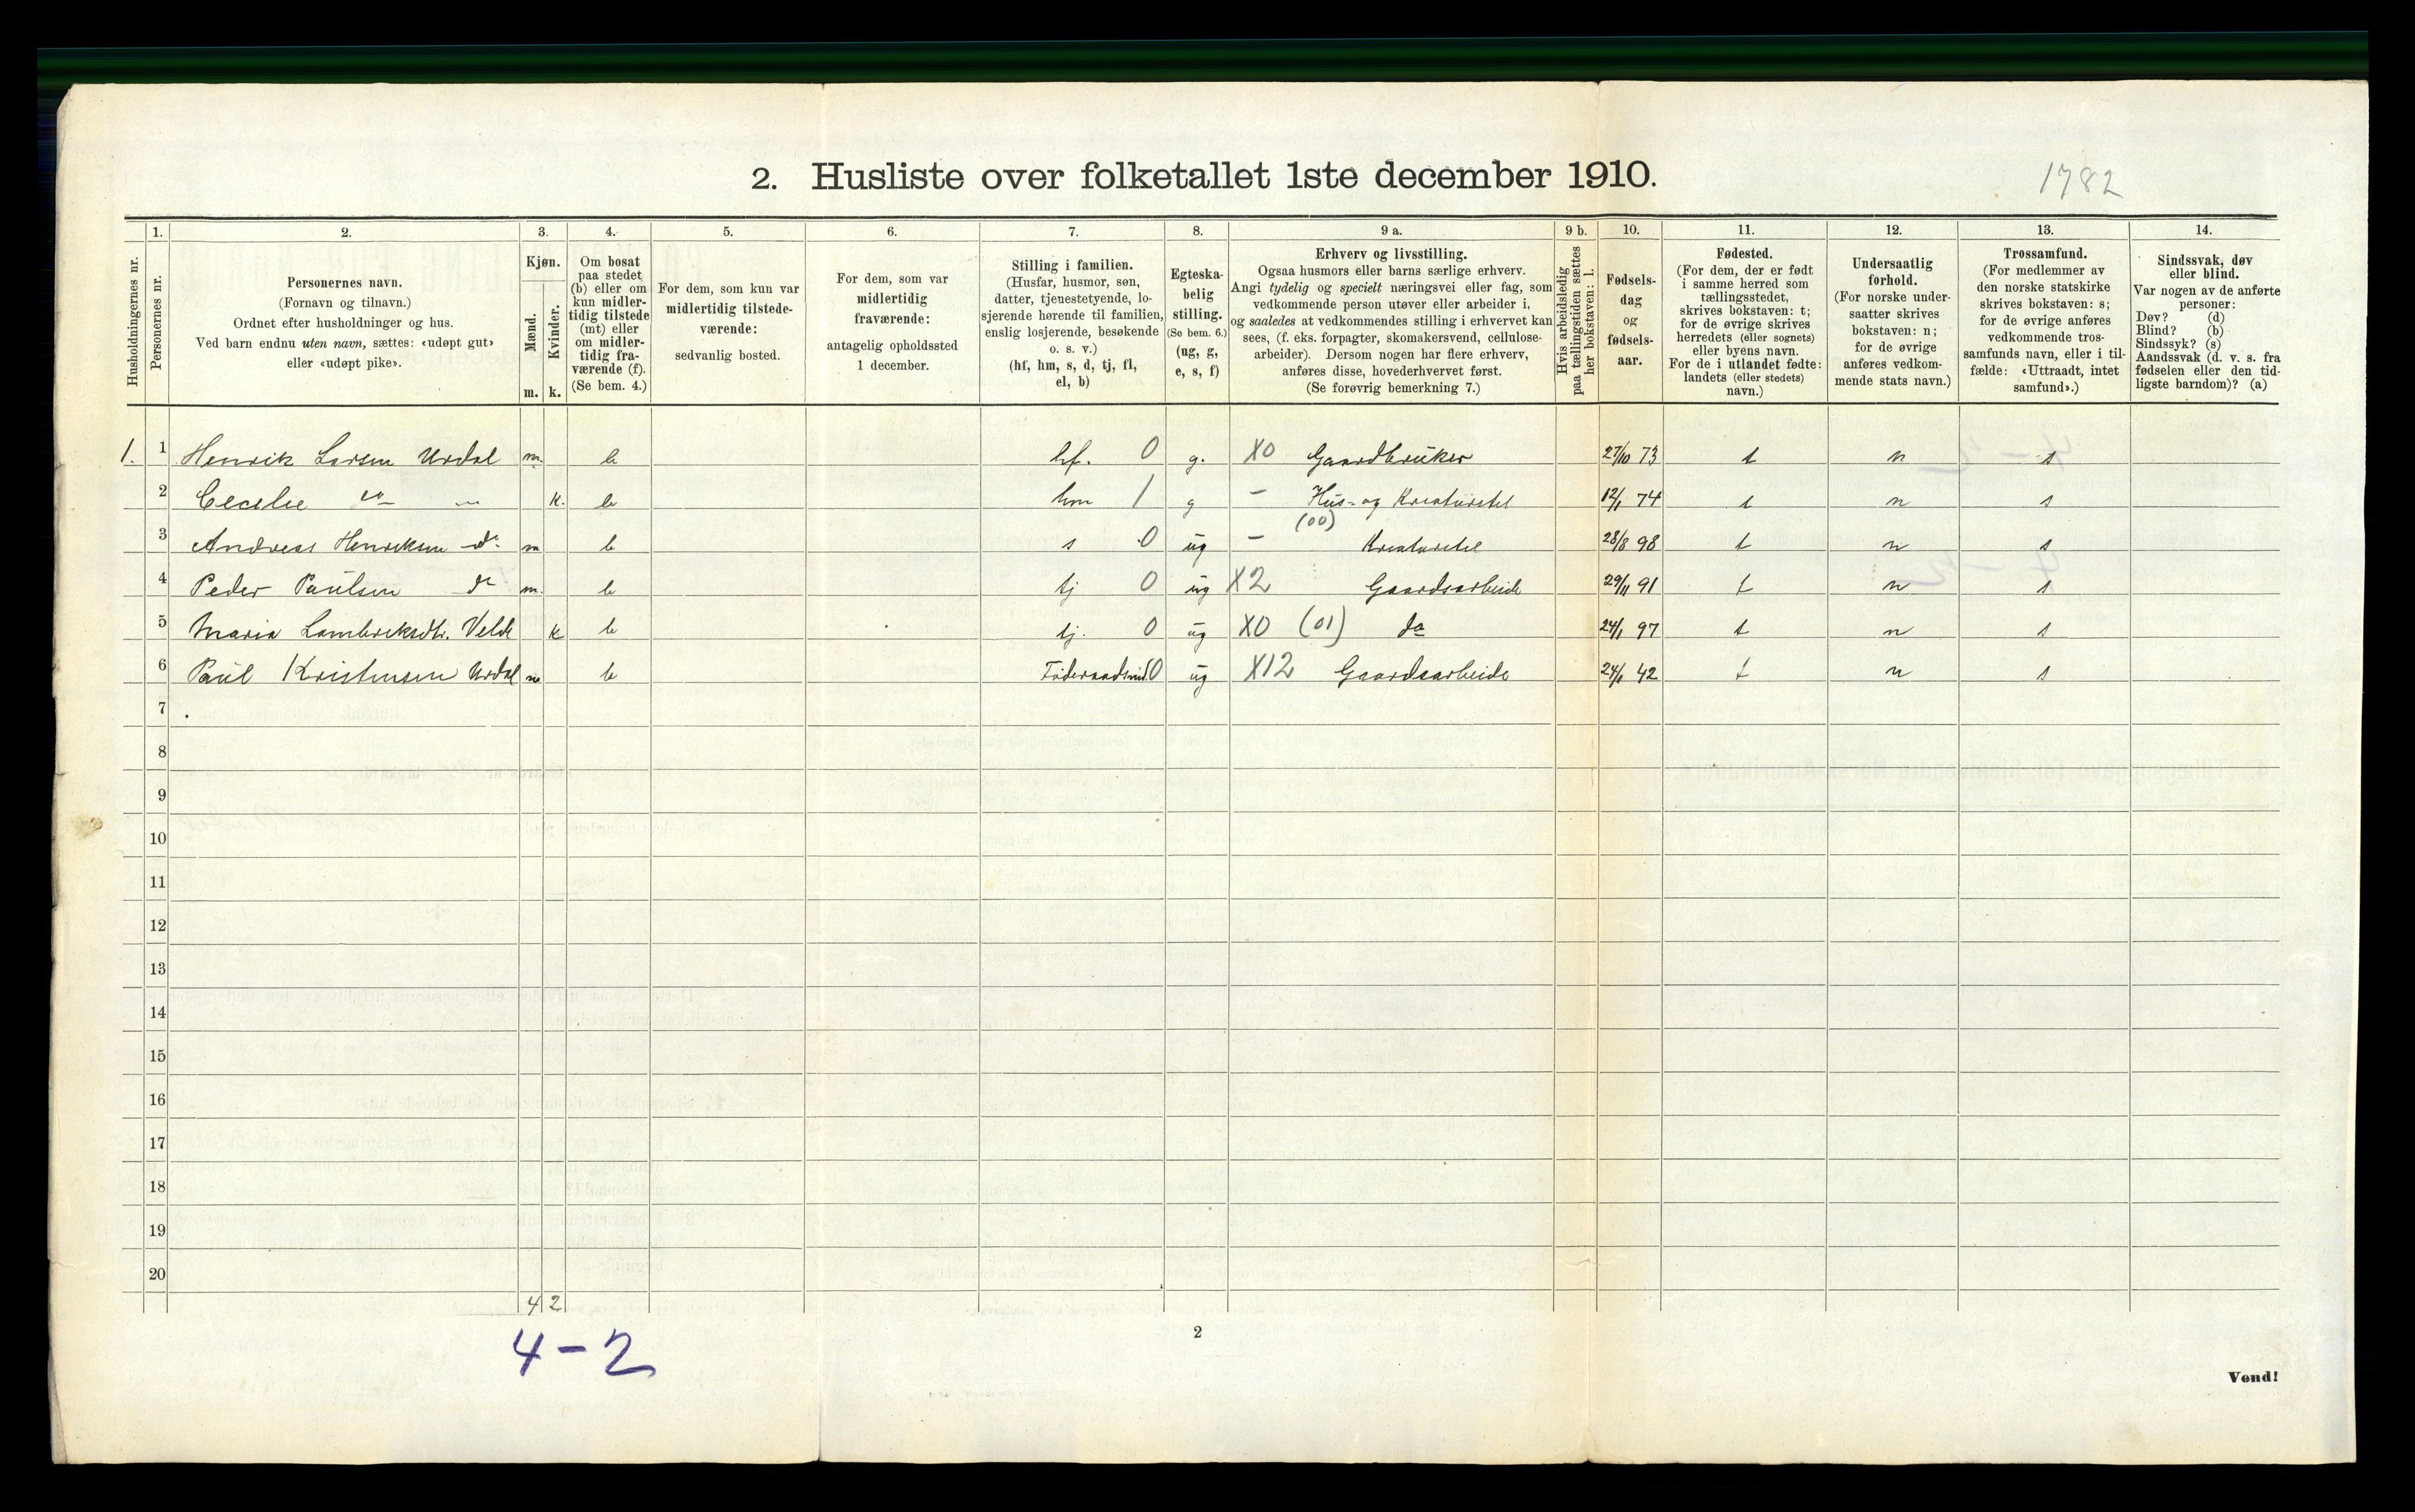 2. Husliste over folketallet 1ste december 1910.
1782
Husholdningernes nr.
1.
Personernes nr.
2.
Personernes navn.
(Fornavn og tilnavn.)
Ordnet efter husholdninger og hus.
Ved barn endnu uten navn, sættes: «udøpt gut»
eller «udøpt pike».
3.
Kjøn.
Mænd.
Kvinder.
m. k.
4.
Om bosat
paa stedet
(b) eller om
kun midler-
tidig tilstede
(mt) eller
om midler-
tidig fra-
værende (f).
(Se bem. 4.)
5.
For dem, som kun var
midlertidig tilstede-
værende:
sedvanlig bosted.
6.
For dem, som var
midlertidig
fraværende:
antagelig opholdssted
1 december.
7.
Stilling i familien.
(Husfar, husmor, søn,
datter, tjenestetyende, lo-
sjerende hørende til familien,
enslig losjerende, besøkende
o. s. v.)
(hf, hm, s, d, tj, fl,
el, b)
8.
Egteska-
belig
stilling.
(Se bem. 6.)
(ug, g,
e, s, f)
9 a.
Erhverv og livsstilling.
Ogsaa husmors eller barns særlige erhverv.
Angi tydelig og specielt næringsvei eller fag, som
vedkommende person utøver eller arbeider i,
og saaledes at vedkommendes stilling i erhvervet kan
sees, (f. eks. forpagter, skomakersvend, cellulose-
arbeider). Dersom nogen har flere erhverv,
anføres disse, hovederhvervet først.
(Se forøvrig bemerkning 7.)
9 b.
Hvis arbeidsledig
paa tællingstiden sættes
her bokstaven: l.
10.
Fødsels-
dag
og
fødsels-
aar.
11.
Fødested.
(For dem, der er født
i samme herred som
tællingsstedet,
skrives bokstaven: t;
for de øvrige skrives
herredets (eller sognets)
eller byens navn.
For de i utlandet fødte:
landets (eller stedets)
navn.)
12.
Undersaatlig
forhold.
(For norske under-
saatter skrives
bokstaven: n;
for de øvrige
anføres vedkom-
mende stats navn.)
13.
Trossamfund.
(For medlemmer av
den norske statskirke
skrives bokstaven: s;
for de øvrige anføres
vedkommende tros-
samfunds navn, eller i til-
fælde: «Uttraadt, intet
samfund».)
14.
Sindssvak, døv
eller blind.
Var nogen av de anførte
personer:
Døv? (d)
Blind? (b)
Sindssyk? (s)
Aandssvak (d. v. s. fra
fødselen eller den tid-
ligste barndom)? (a)
1. 1 Henrik Larsen Urdal m. b hf. 0 g. X0 Gaardbruker 27/10 73 t n s
2 Cecelie do — k. b hm 1 g — Hus- og Kreaturstel 12/1 74 t n s
(00)
3 Andreas Henriksen do m b s 0 ug — Kreaturstel 28/8 98 t n s
4 Peder Paulsen do m. b tj 0 ug X2 Gaardsarbeide 29/11 91 t n s
5 Maria Lambrektsdtr. Velde k b tj. 0 ug X0 (01) do 24/1 97 t n s
6 Paul Kristensen Urdal m b 0 ug X12 Gaardsarbeide 42 t n s
7
8
9
10
11
12
13
14
15
16
17
18
19
20
4 2
4-2
2
Vend!